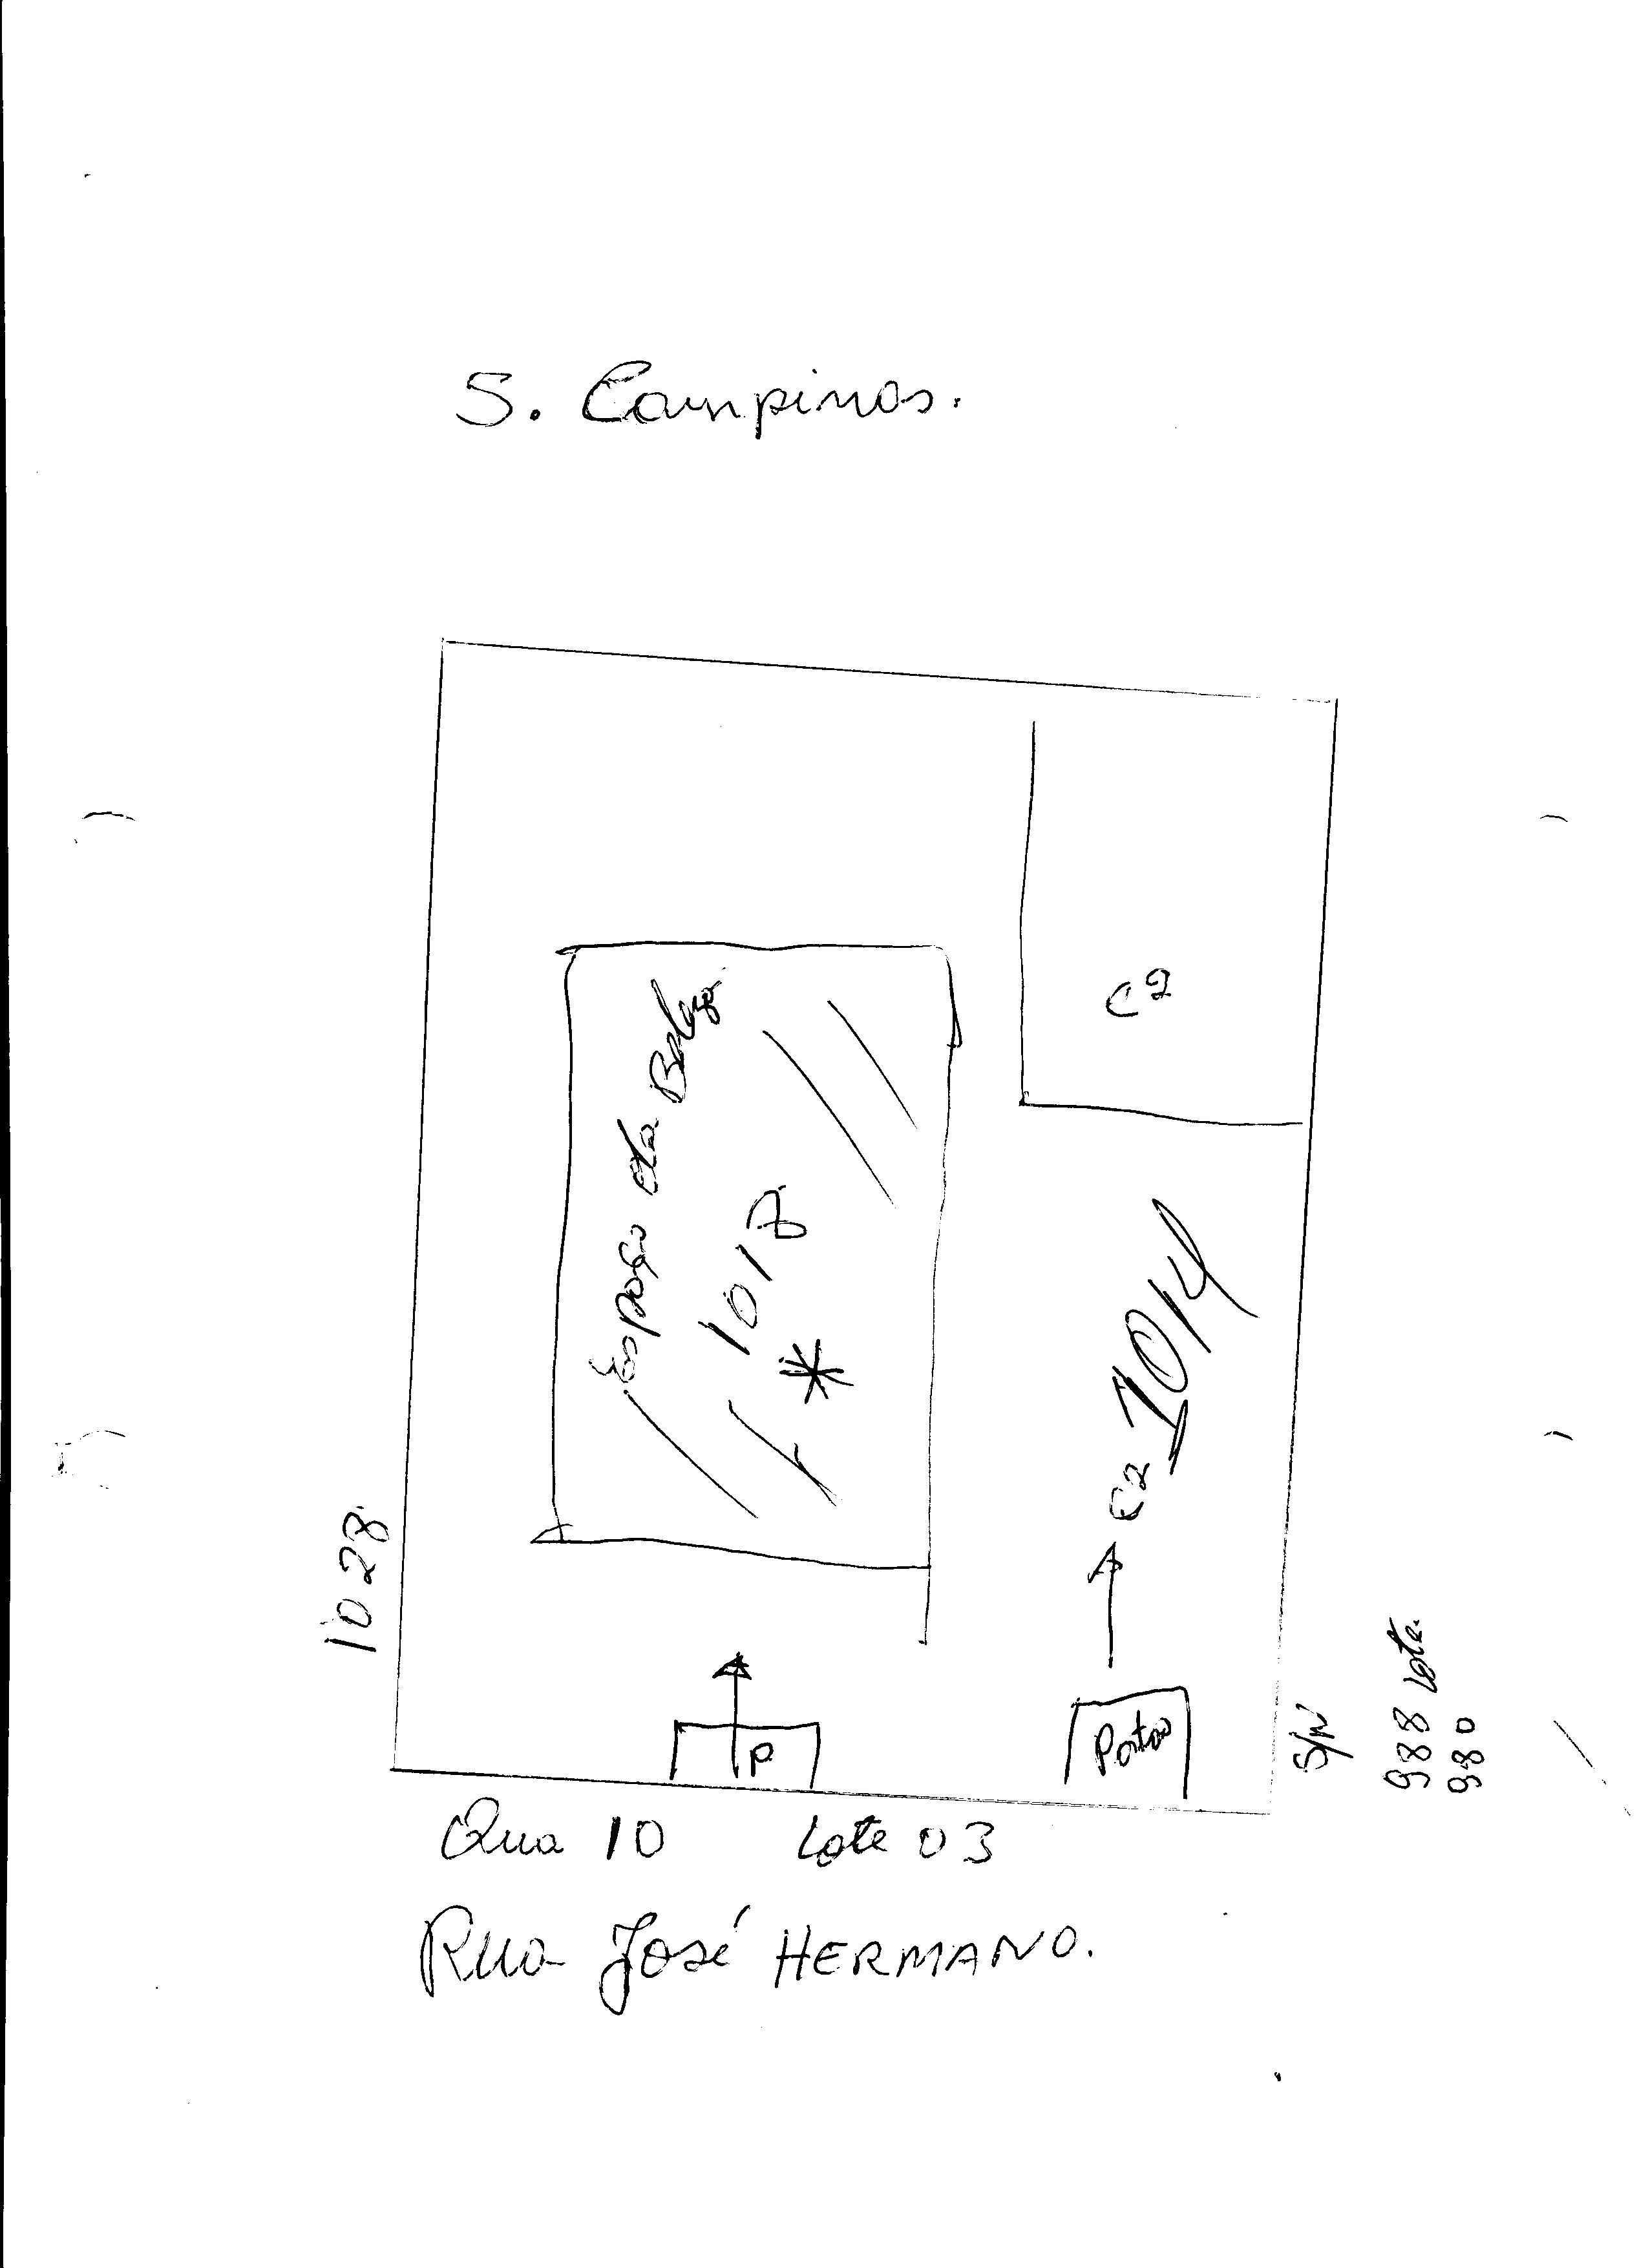 S. Campinas.
C2
Espaço da Beleza
1018
*
C2 1014
1028
P
Portão
S/N
988 Lote.
980
Qua 10 Lote 03
Rua José HERMANO.